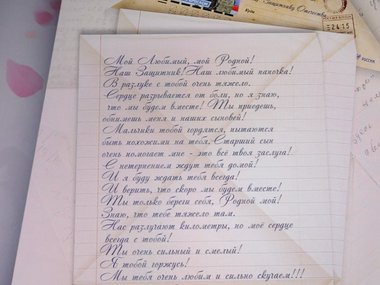 Защитнику Отечества
Мой Любимый, мой Родной!
Наш Защитник! Наш любимый папочка!
В разлуке с тобой очень тяжело.
Сердце разрывается от боли, но я знаю,
что мы будем вместе! Ты приедешь,
обнимешь меня и наших сыновей!
Мальчики тобой гордятся, пытаются
быть похожими на тебя. Старший сын
очень помогает мне - это всё твоя заслуга!
С нетерпением ждут тебя домой!
И я буду ждать тебя всегда!
И верить, что скоро мы будем вместе!
Ты только береги себя, Родной мой!
Знаю, что тебе тяжело там.
Нас разлучают километры, но моё сердце
всегда с тобой!
Ты очень сильный и смелый!
Я тобой горжусь!
Мы тебя очень любим и сильно скучаем!!!